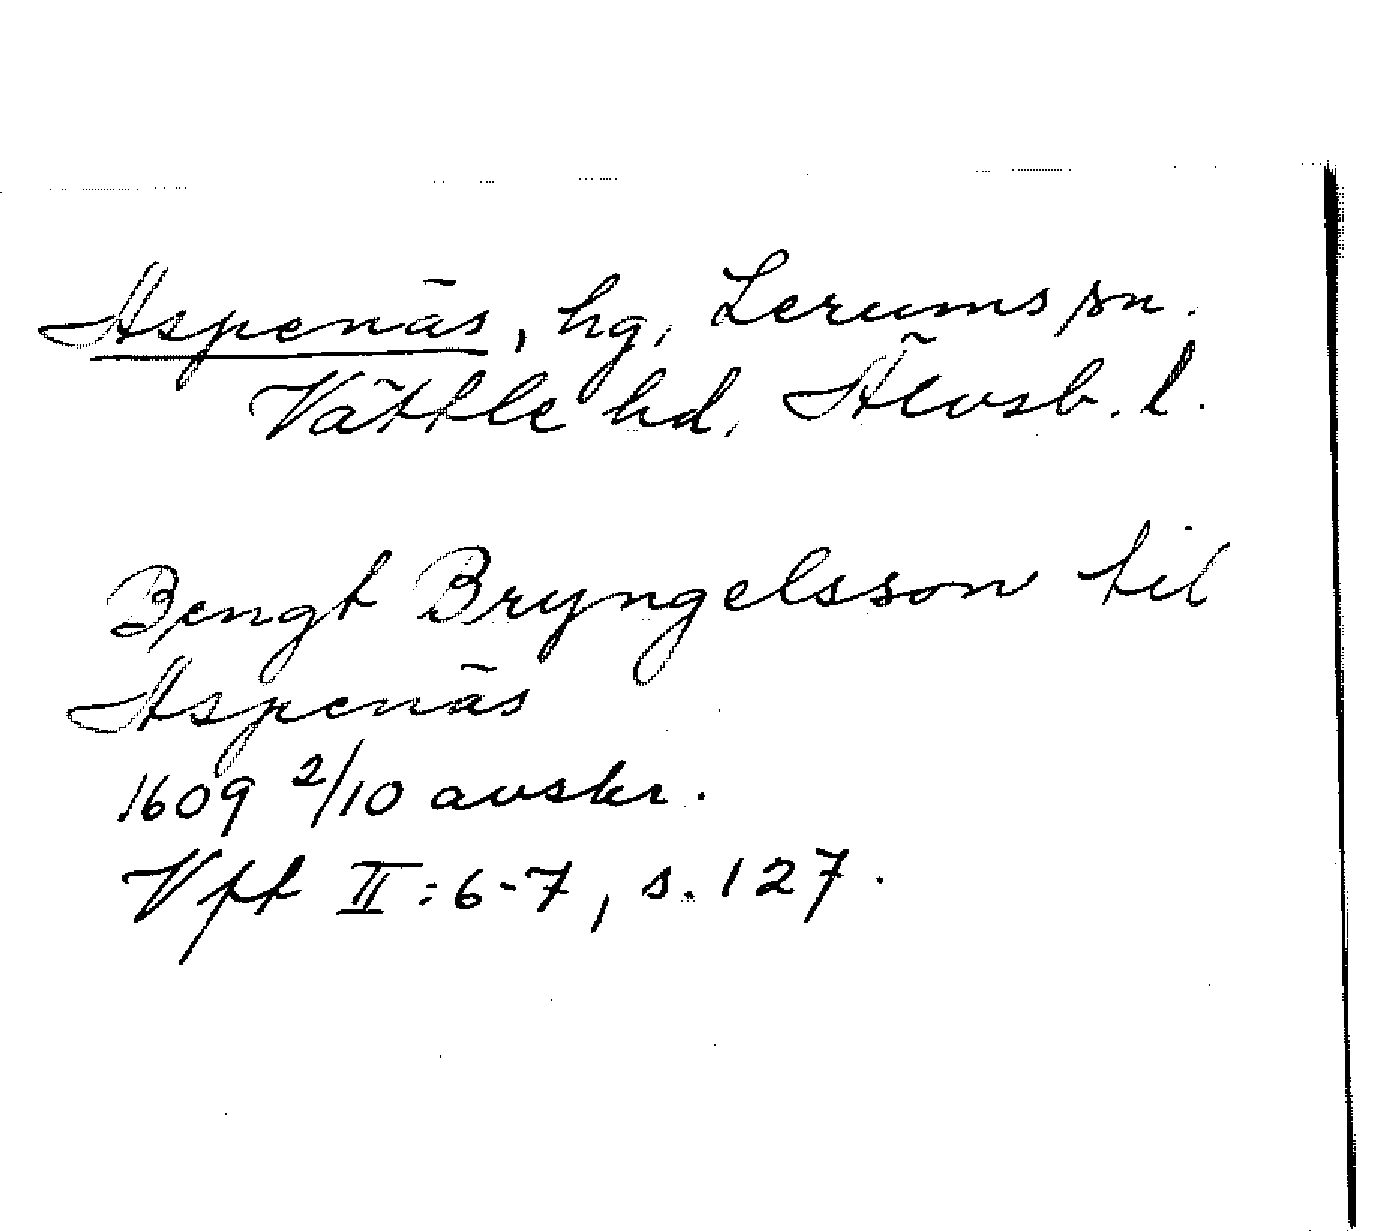 Aspenäs, hg, Lerums sn.
Vättle hd, Älvsb. l.
Bengt Bryngelsson til
Aspenäs
1609 2/10 avskr.
Vft II: 6-7, s. 127.